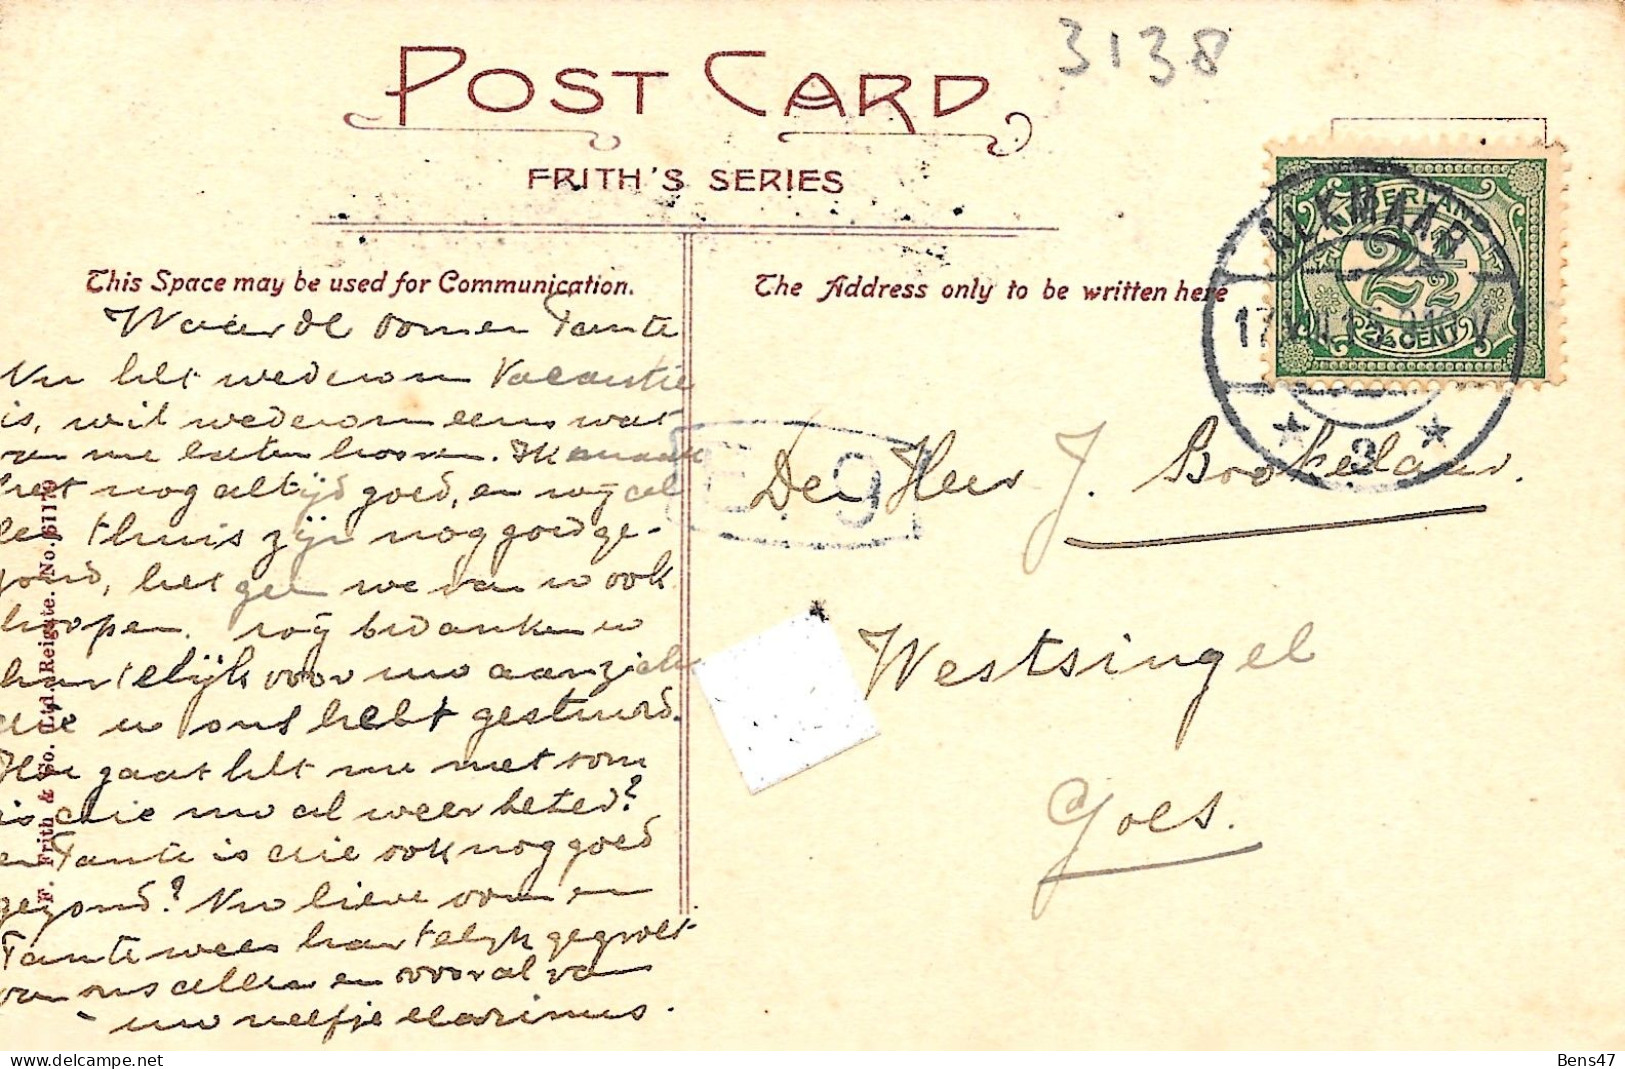 3138
POST CARD
FRITH'S SERIES
This Space may be used for Communication.
The Address only to be written here
NEDERLAND
2½
2½ CENT
ALKMAAR
3
Waarde oom en Tante
Nu het wederom Vacantie
is, wil wederom eens wat
van me laten hooren. Ik maak
het nog altijd goed, en wij al
len thuis zijn nog goed ge-
zond, het geen we van u ook
hoopen. wij bedanken u
hartelijk voor uw aanzicht
die u ons hebt gestuurd.
Hoe gaat het nu met oom
is die nu al weer beter?
en Tante is die ook nog goed
gezond? Nu lieve oom en
Tante wees hartelijk gegroet
van ons allen en vooral van
uw neefje Marinus.
De Heer J. Bookelaar.
Westsingel
Goes.
F. Frith & Co. Ltd. Reigate. No. 61170
Bens47